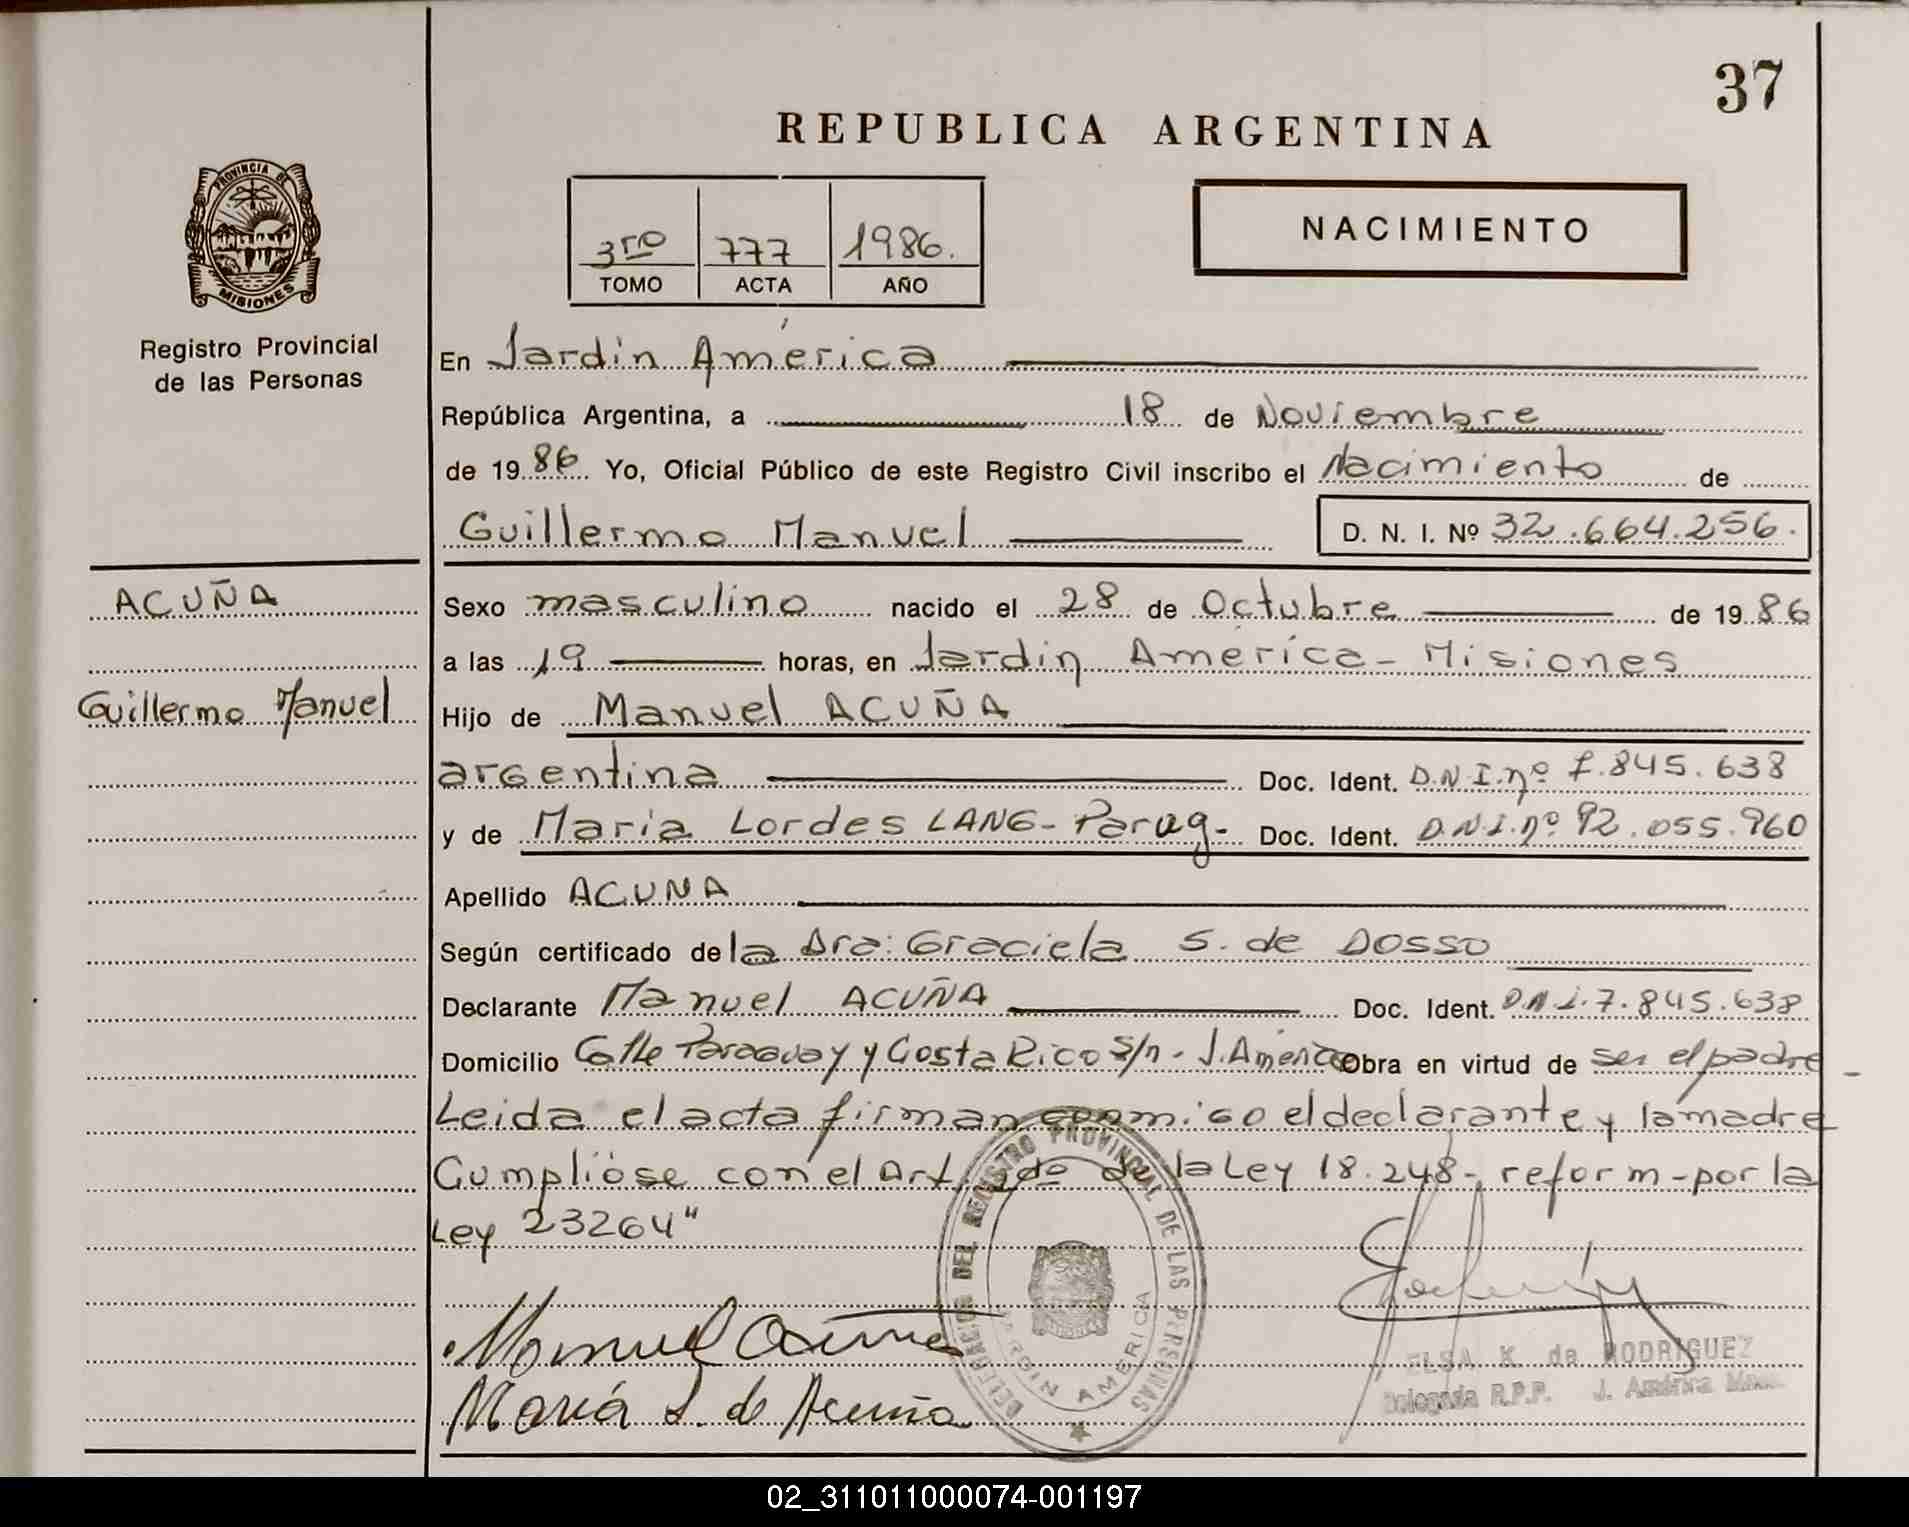 37
REPUBLICA ARGENTINA
PROVINCIA DE
MISIONES
Registro Provincial
de las Personas
3ro 777 1986.
TOMO ACTA AÑO
NACIMIENTO
En Jardín América
República Argentina, a 18 de Noviembre
de 1986 Yo, Oficial Público de este Registro Civil inscribo el Nacimiento de
Guillermo Manuel D. N. I. Nº 32.664.256.
ACUÑA
Guillermo Manuel
Sexo masculino nacido el 28 de Octubre de 1986
a las 19 horas, en Jardín América - Misiones
Hijo de Manuel ACUÑA
argentina Doc. Ident. D.N.I. nº 7.845.638
y de Maria Lordes LANG - Parag - Doc. Ident. D.N.I. nº 92.055.960
Apellido ACUNA
Según certificado de la Dra: Graciela S. de DOSSO
Declarante Manuel ACUÑA Doc. Ident. D.N.I. 7.845.638
Domicilio Calle Paraguay y Costa Rico s/n - J. América Obra en virtud de ser el padre -
Leida el acta firman conmigo el declarante y la madre
Cumplióse con el Art. 2do de la Ley 18.248 - reform - por la
Ley 23264"
Manuel Acuña
María L. de Acuña
DELEGACION DEL REGISTRO PROVINCIAL DE LAS PERSONAS
JARDIN AMERICA
ELSA K. de RODRIGUEZ
Delegada R.P.P. J. América
02_311011000074-001197